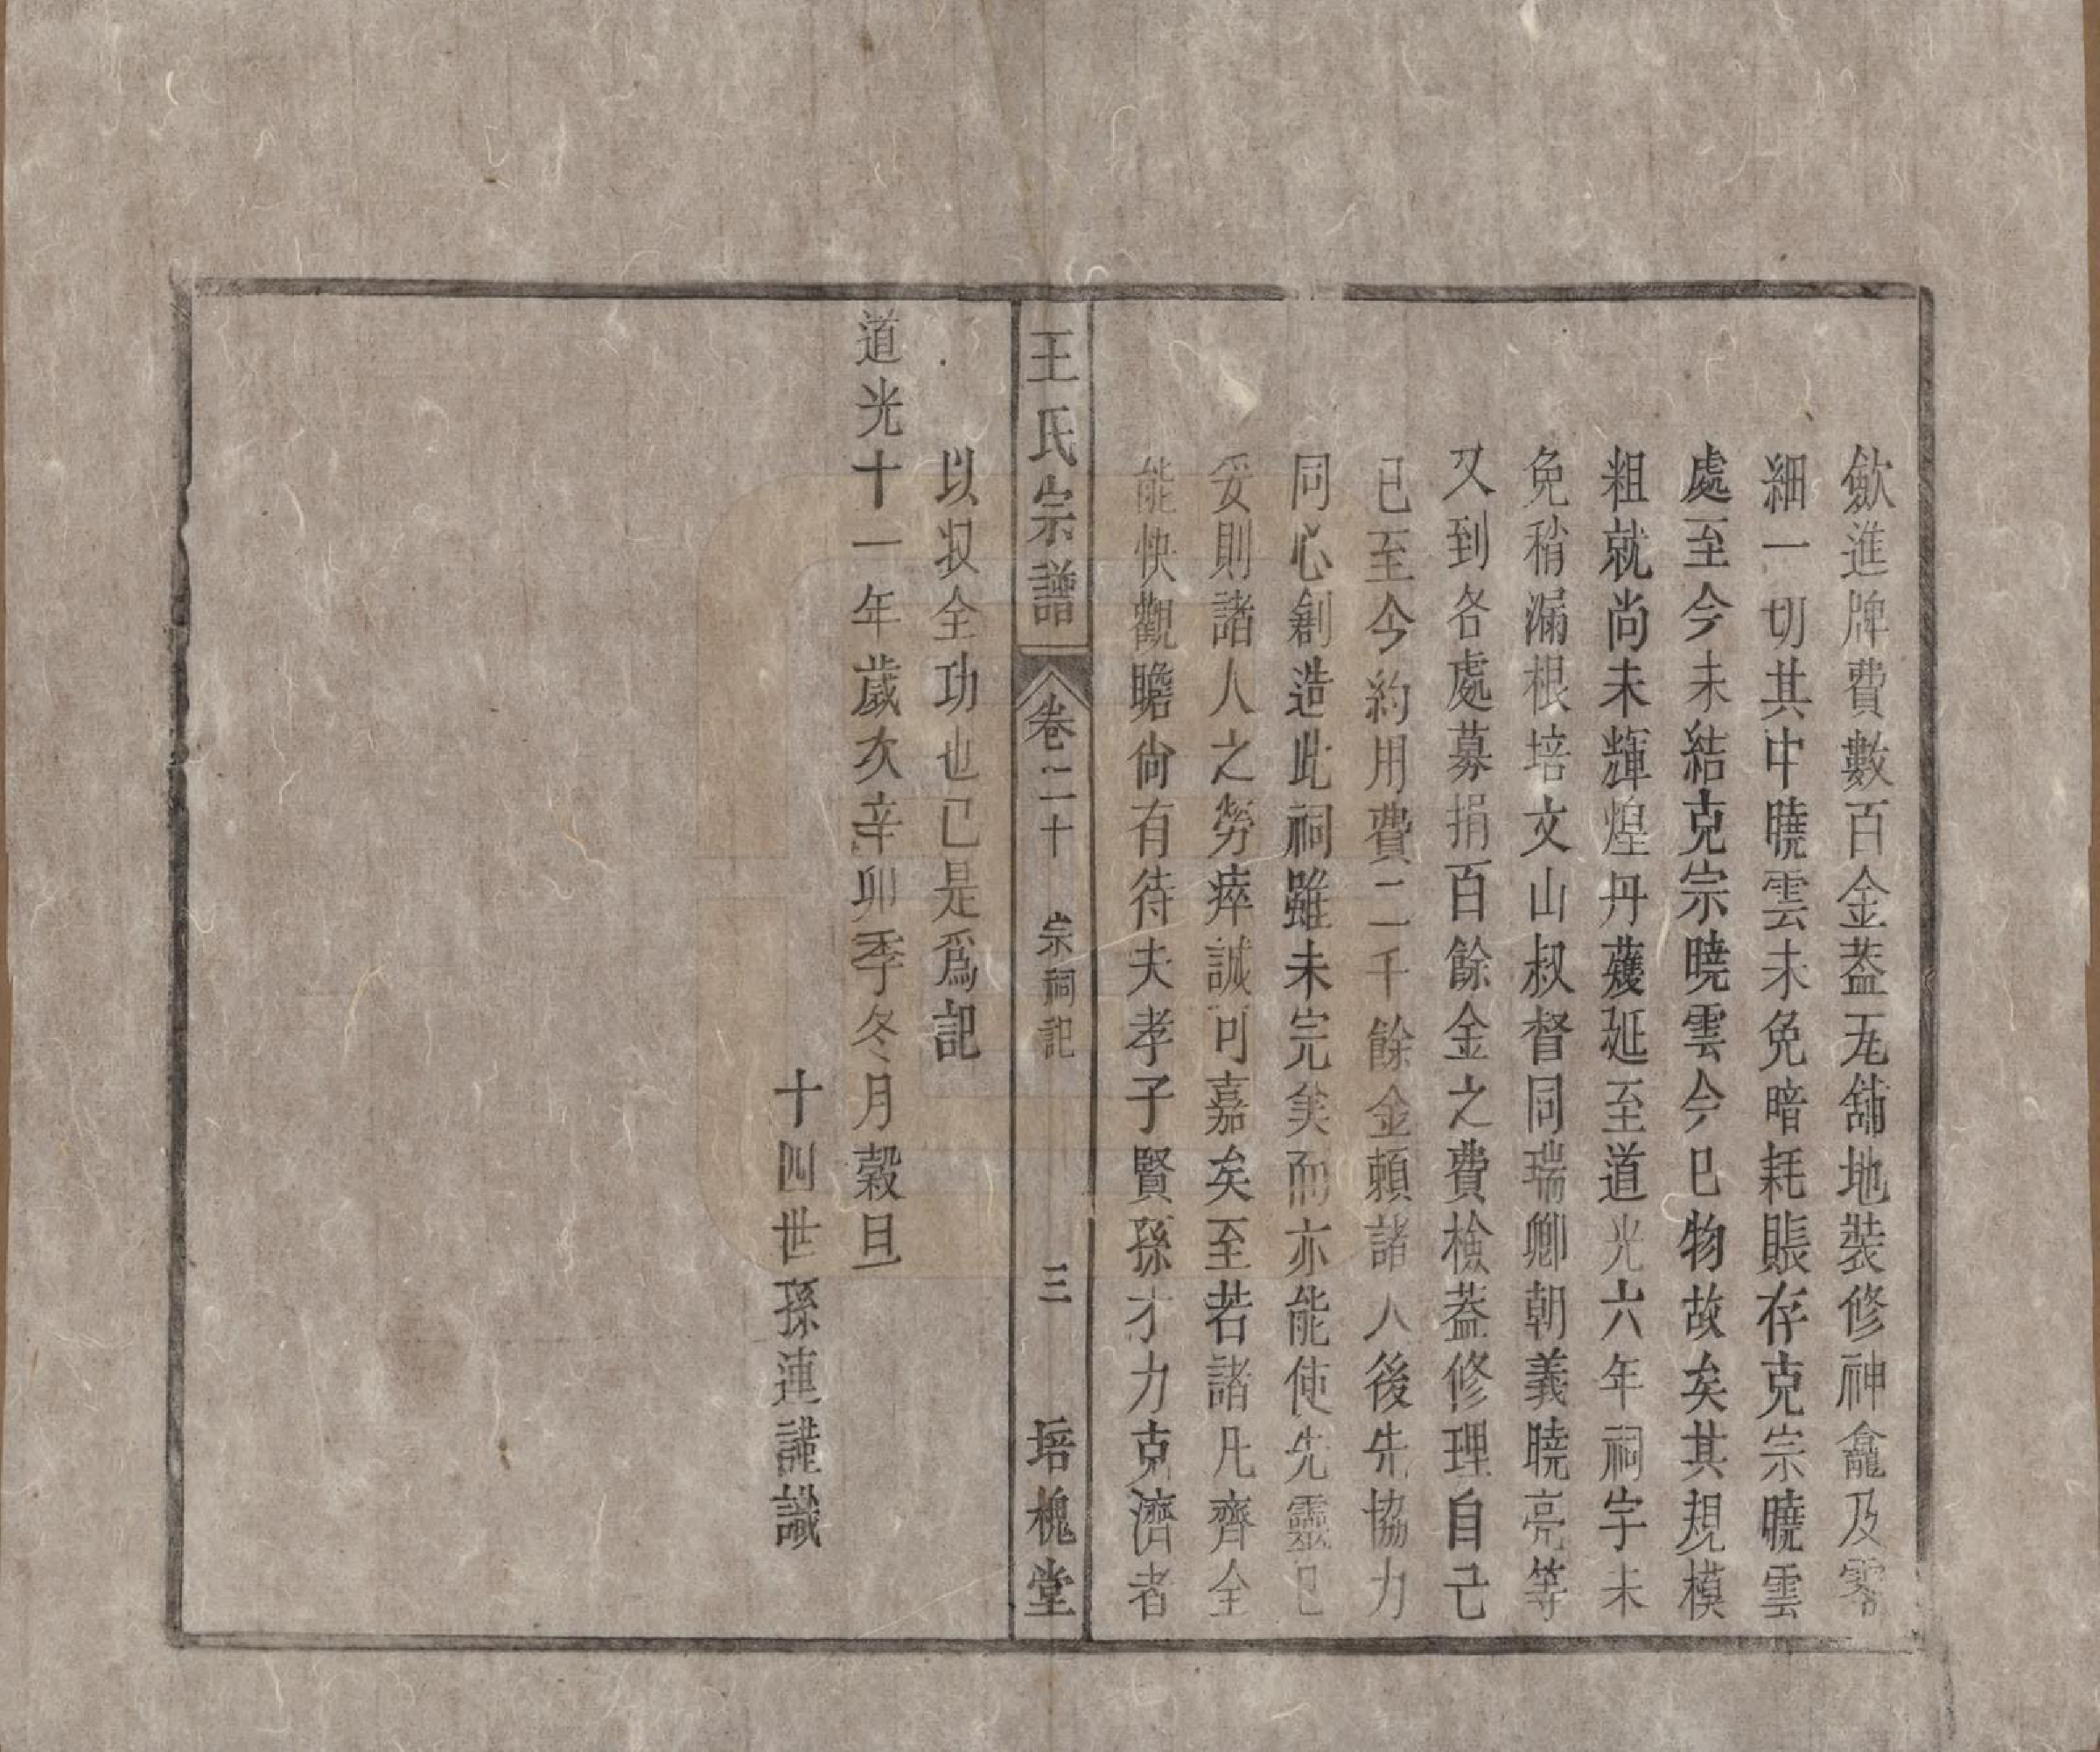 歛進牌費數百金蓋瓦舖地裝修神龕及零
細一切其中曉雲未免暗耗賬存克宗曉雲
處至今未結克宗曉雲今已物故矣其規模
粗就尚未輝煌丹雘延至道光六年祠宇未
免稍漏根培文山叔督同瑞卿朝義曉亮等
又到各處募捐百餘金之費檢蓋修理自己
已至今約用費二千餘金賴諸人後先協力
同心創造此祠雖未完美而亦能使先靈已
妥則諸人之勞瘁誠可嘉矣至若諸凡齊全
能快觀瞻尙有待夫孝子賢孫才力克濟者
王氏宗譜
卷二十
宗祠記
三
培槐堂
以収全功也已是爲記
道光十一年歲次辛卯季冬月穀旦
十四世孫連謹識